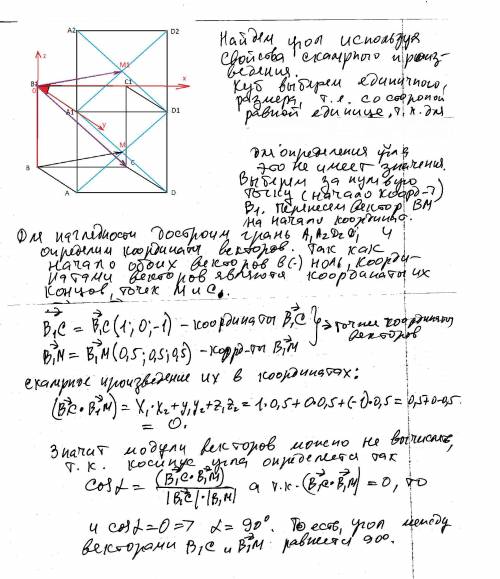 A2
D2
z
M1
B1
C1
x
O
A1
D1
y
M
B
C
A
D
Найдем угол используя
свойства скалярного произ-
ведения.
Куб выберем единичного,
размера, т.е. со стороной
равной единице, т.к. для
для определения угла
это не имеет значения.
Выберем за нулевую
точку (начало коорд-т)
B₁. Перенесем вектор BM
на начало координат.
Для наглядности достроим грань A₁A₂D₂D₁ и
определим координаты векторов. Так как
начало обоих векторов в (-) ноль, коорди-
натами векторов являются координаты их
концов, точек M и C.
B₁C = B₁C(1; 0; -1) - координаты B₁C
B₁M = B₁M(0,5; 0,5; 0,5) - коорд-ты B₁M
точки координаты
векторов
скалярное произведение их в координатах:
(B₁C·B₁M) = x₁·x₂+y₁y₂+z₁z₂ = 1·0,5+0·0,5+(-1)·0,5 = 0,5+0-0,5
= 0.
Значит модули векторов можно не вычислять,
т.к. косинус угла определяется так
cos α = (B₁C·B₁M) / |B₁C|·|B₁M| а т.к. (B₁C·B₁M) = 0, то
и cos α = 0 => α = 90°. То есть, угол между
векторами B₁C и B₁M равняется 90°.